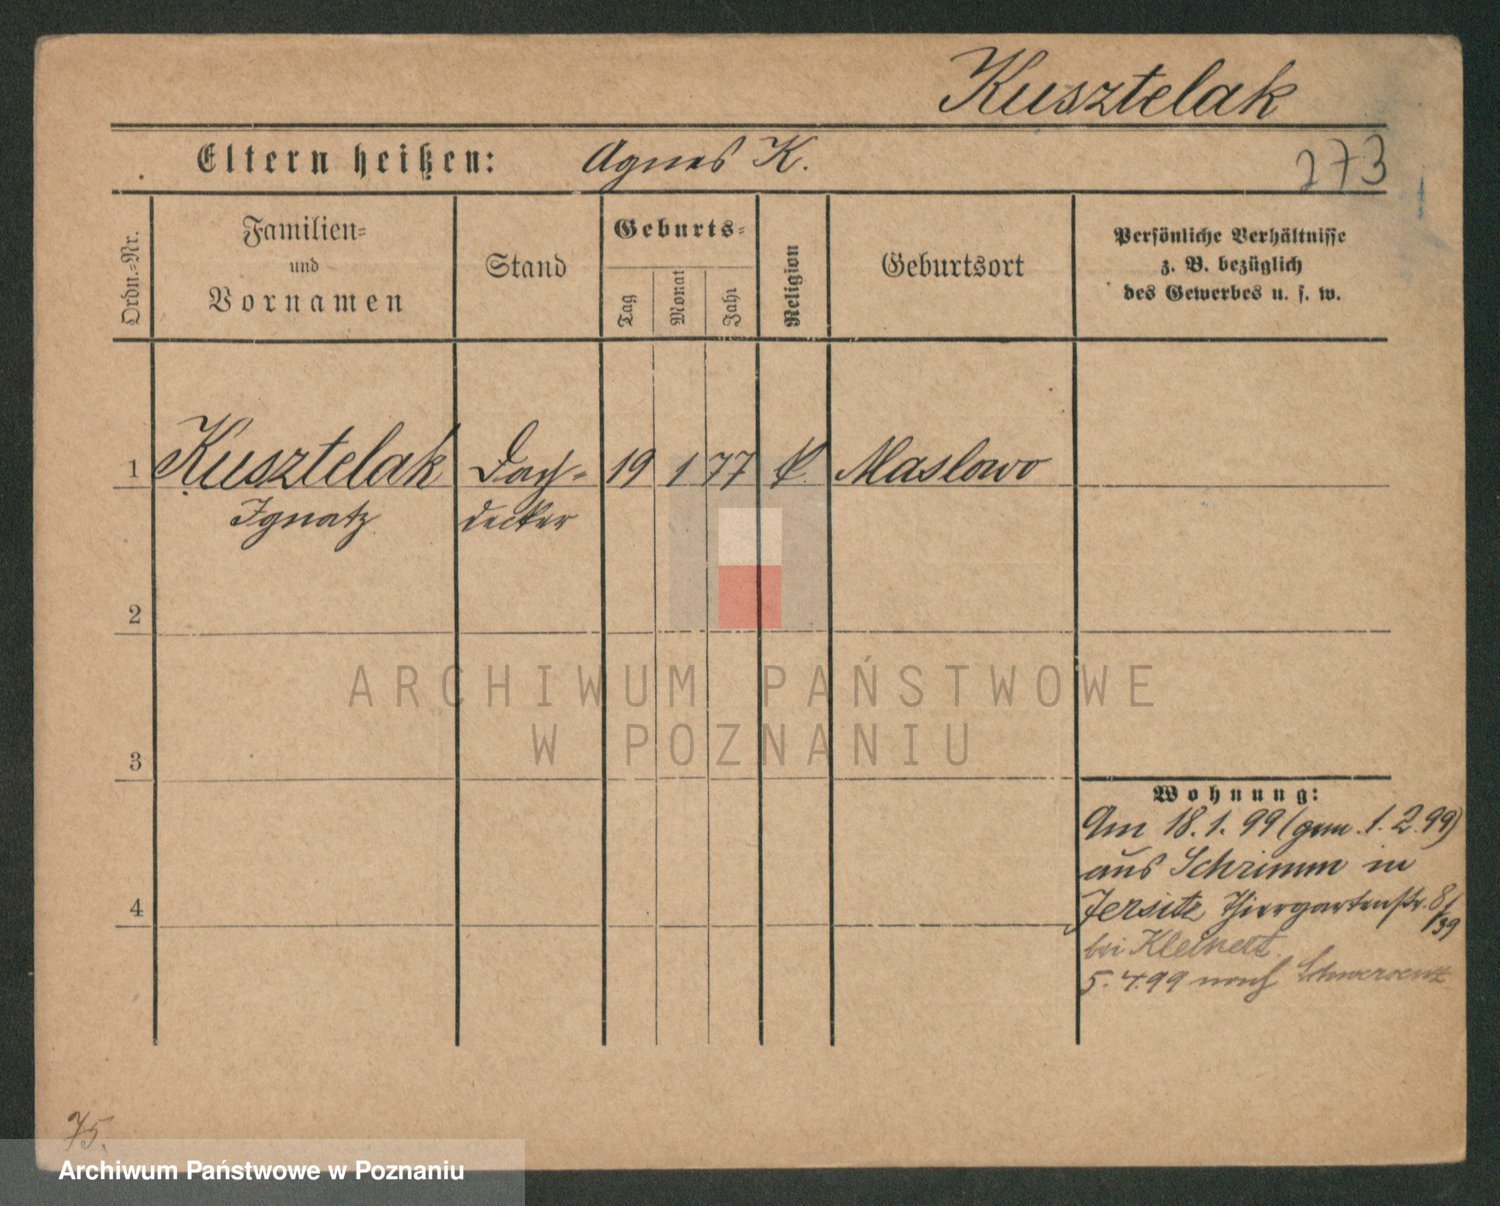 Kusztelak
Eltern heißen: Agnes K.
273
Ordn.=Nr.
Familien=
und
Vornamen
Stand
Geburts=
Tag
Monat
Jahr
Religion
Geburtsort
Persönliche Verhältnisse
z. B. bezüglich
des Gewerbes u. s. w.
1 Kusztelak Dach= 19 1 77 k. Maslowo
Ignatz decker
2
ARCHIWUM PAŃSTWOWE
W POZNANIU
3
Wohnung:
Am 18.1.99 (gem. 1.2.99)
aus Schrimm in
4
Jersitz Thiergartenstr. 8/
/39
bei Kleinert
5.4.99 nach Schwersenz
75.
Archiwum Państwowe w Poznaniu